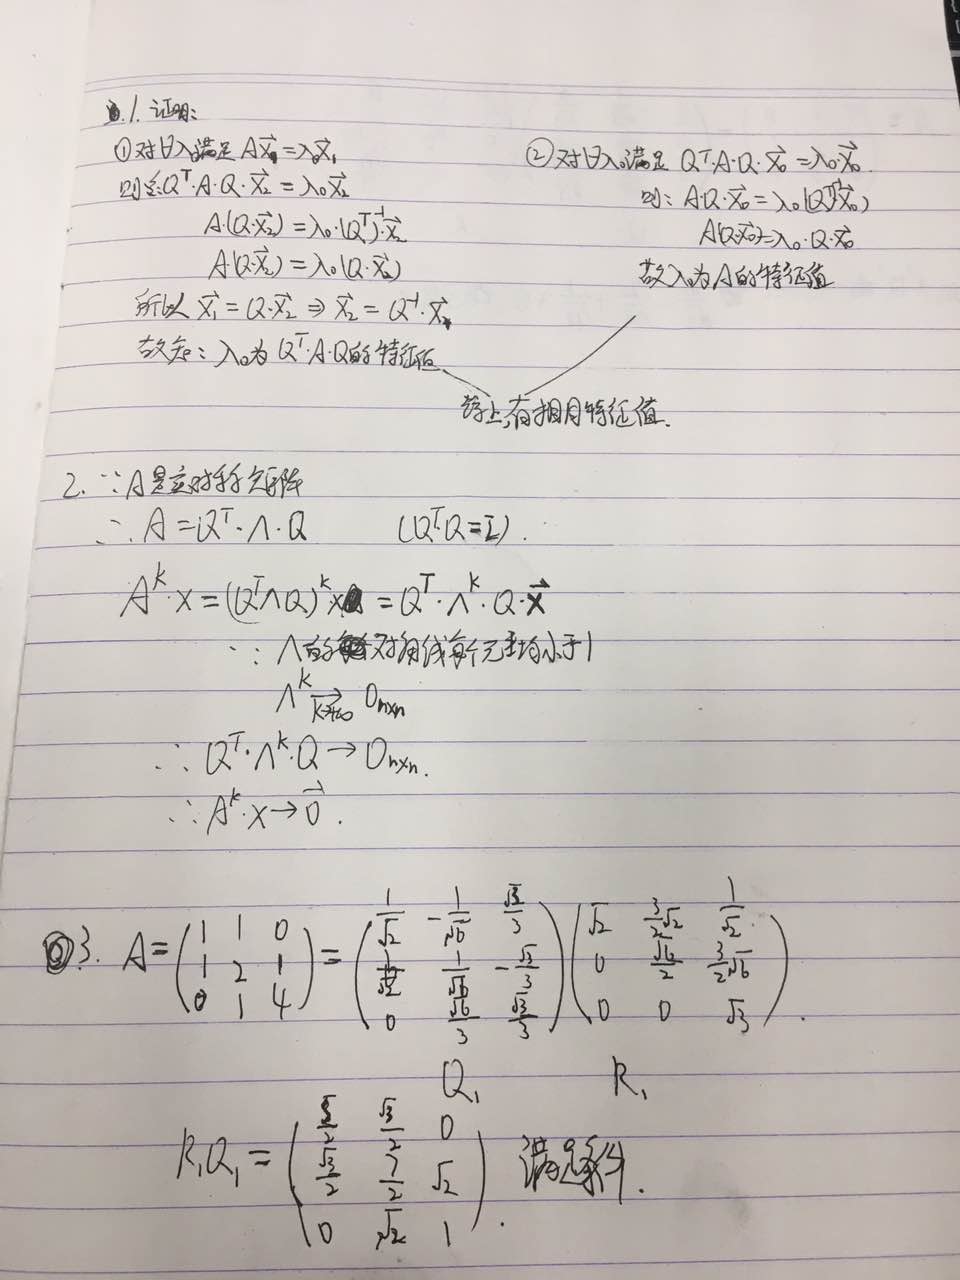 1. 证明:
①对∀λ₀满足 Ax⃗₁=λ₀x⃗₁
则:Qᵀ·A·Q·x⃗₂=λ₀x⃗₂
A·(Q·x⃗₂)=λ₀·(Qᵀ)⁻¹·x⃗₂
A(Q·x⃗₂)=λ₀(Q·x⃗₂)
所以 x⃗₁=Q·x⃗₂⇒x⃗₂=Q⁻¹·x⃗
故知:λ₀为Qᵀ·A·Q的特征值
②对∀λ₀满足 Qᵀ·A·Q·x⃗₀=λ₀·x⃗₀.
则:A·Q·x⃗₀=λ₀(Qᵀ)⁻¹x⃗₀)
A(Q·x⃗₀)=λ₀·Q·x⃗₀
故λ₀为A的特征值
综上,有相同特征值.
2. ∵A是实对称矩阵
∴ A=Qᵀ·Λ·Q (QᵀQ=I).
Aᵏ·x=(QᵀΛQ)ᵏx=Qᵀ·Λᵏ·Q·x⃗
∵ Λ的对角线每个元素均小于1
Λᵏ →(k→+∞) 0ₙₓₙ
∴ Qᵀ·Λᵏ·Q→0ₙₓₙ.
∴ Aᵏ·x→0⃗.
3. A=(1 1 0; 1 2 1; 0 1 4)=(1/√2 -1/√6 √3/3; 1/√2 1/√6 -√3/3; 0 √6/3 √3/3)(√2 3/2√2 1/√2; 0 √6/2 3/2√6; 0 0 √3).
Q₁ R₁
R₁Q₁=(5/2 √3/2 0; √3/2 7/2 √2; 0 √2 1). 满足条件.